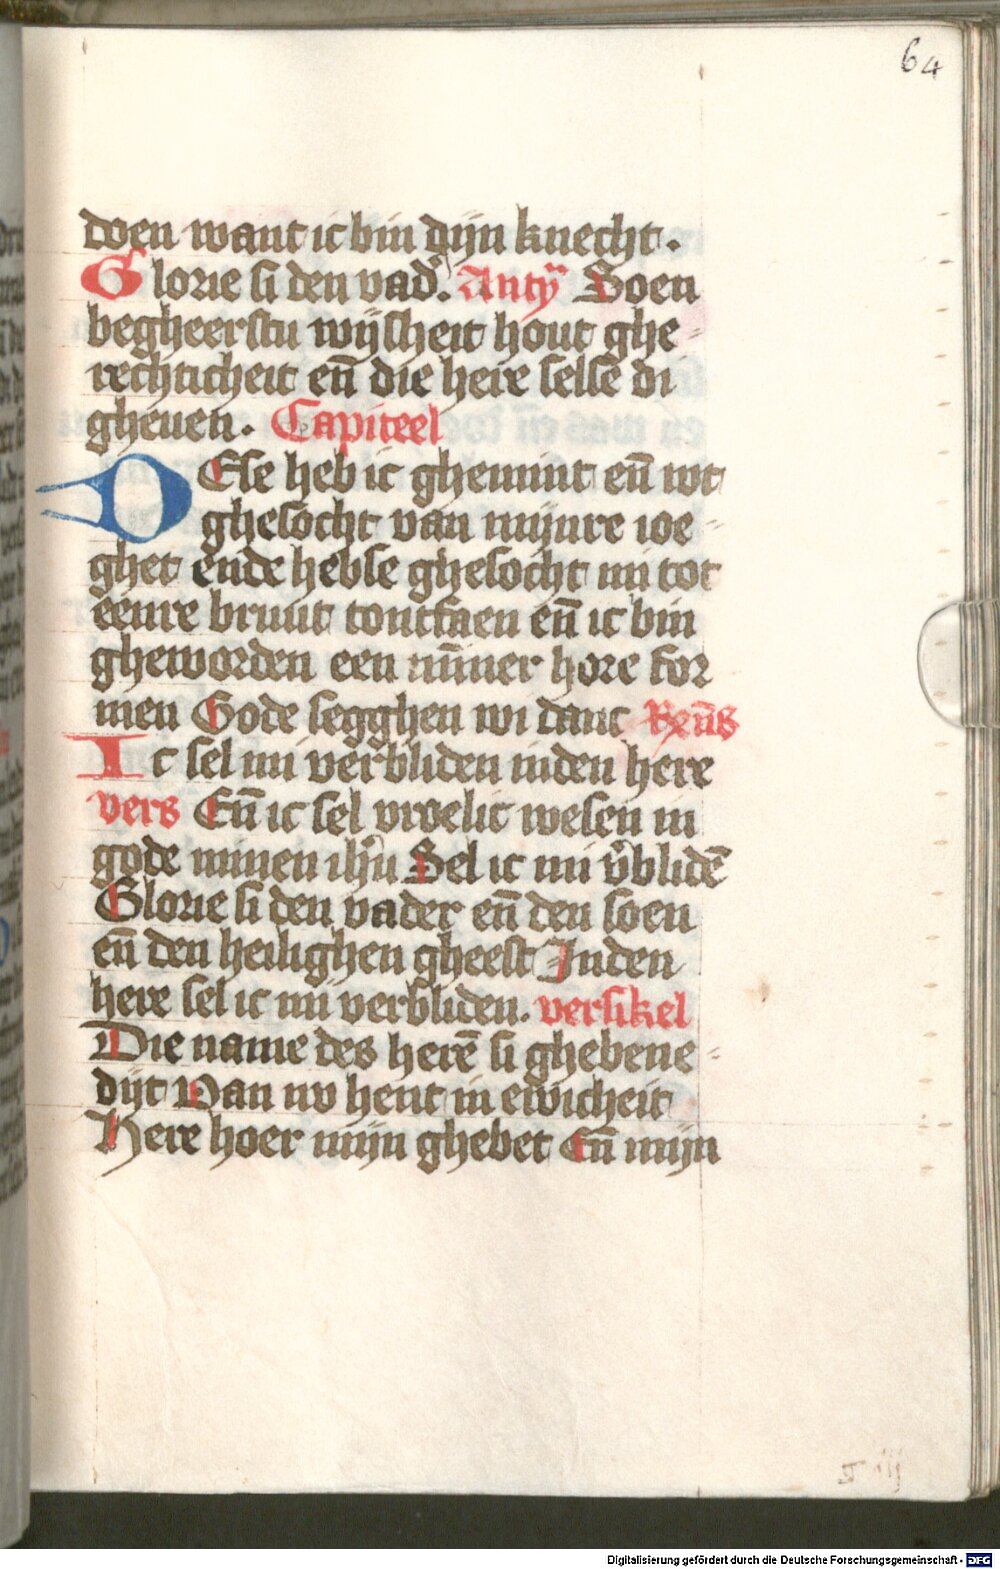 64
doen want ic bin dijn knecht.
Glorie si den vad᷎. Anty̎ Soen
begheerstu wijsheit hout ghe-
rechticheit en̄ die here selse di
gheuen. Capiteel
DEse heb ic ghemint en̄ wt
ghesocht van mijnre ioe-
ghet ende hebse ghesocht mi tot
eenre bruut tontfaen en̄ ic bin
gheworden een mīner hore for
men Gode segghen wi danc Ren̄s
Ic sel mi verbliden inden here
vers En̄ ic sel vroelic wesen in
gode minen ihū Sel ic mi v᷎blidē
Glorie si den vader en̄ den soen
en̄ den heilighen gheest Inden
here sel ic mi verbliden. versikel
Die name des herē si ghebene-
dijt Van nv hent in ewicheit
Here hoer mijn ghebet En̄ mijn
Digitalisierung gefördert durch die Deutsche Forschungsgemeinschaft - DFG